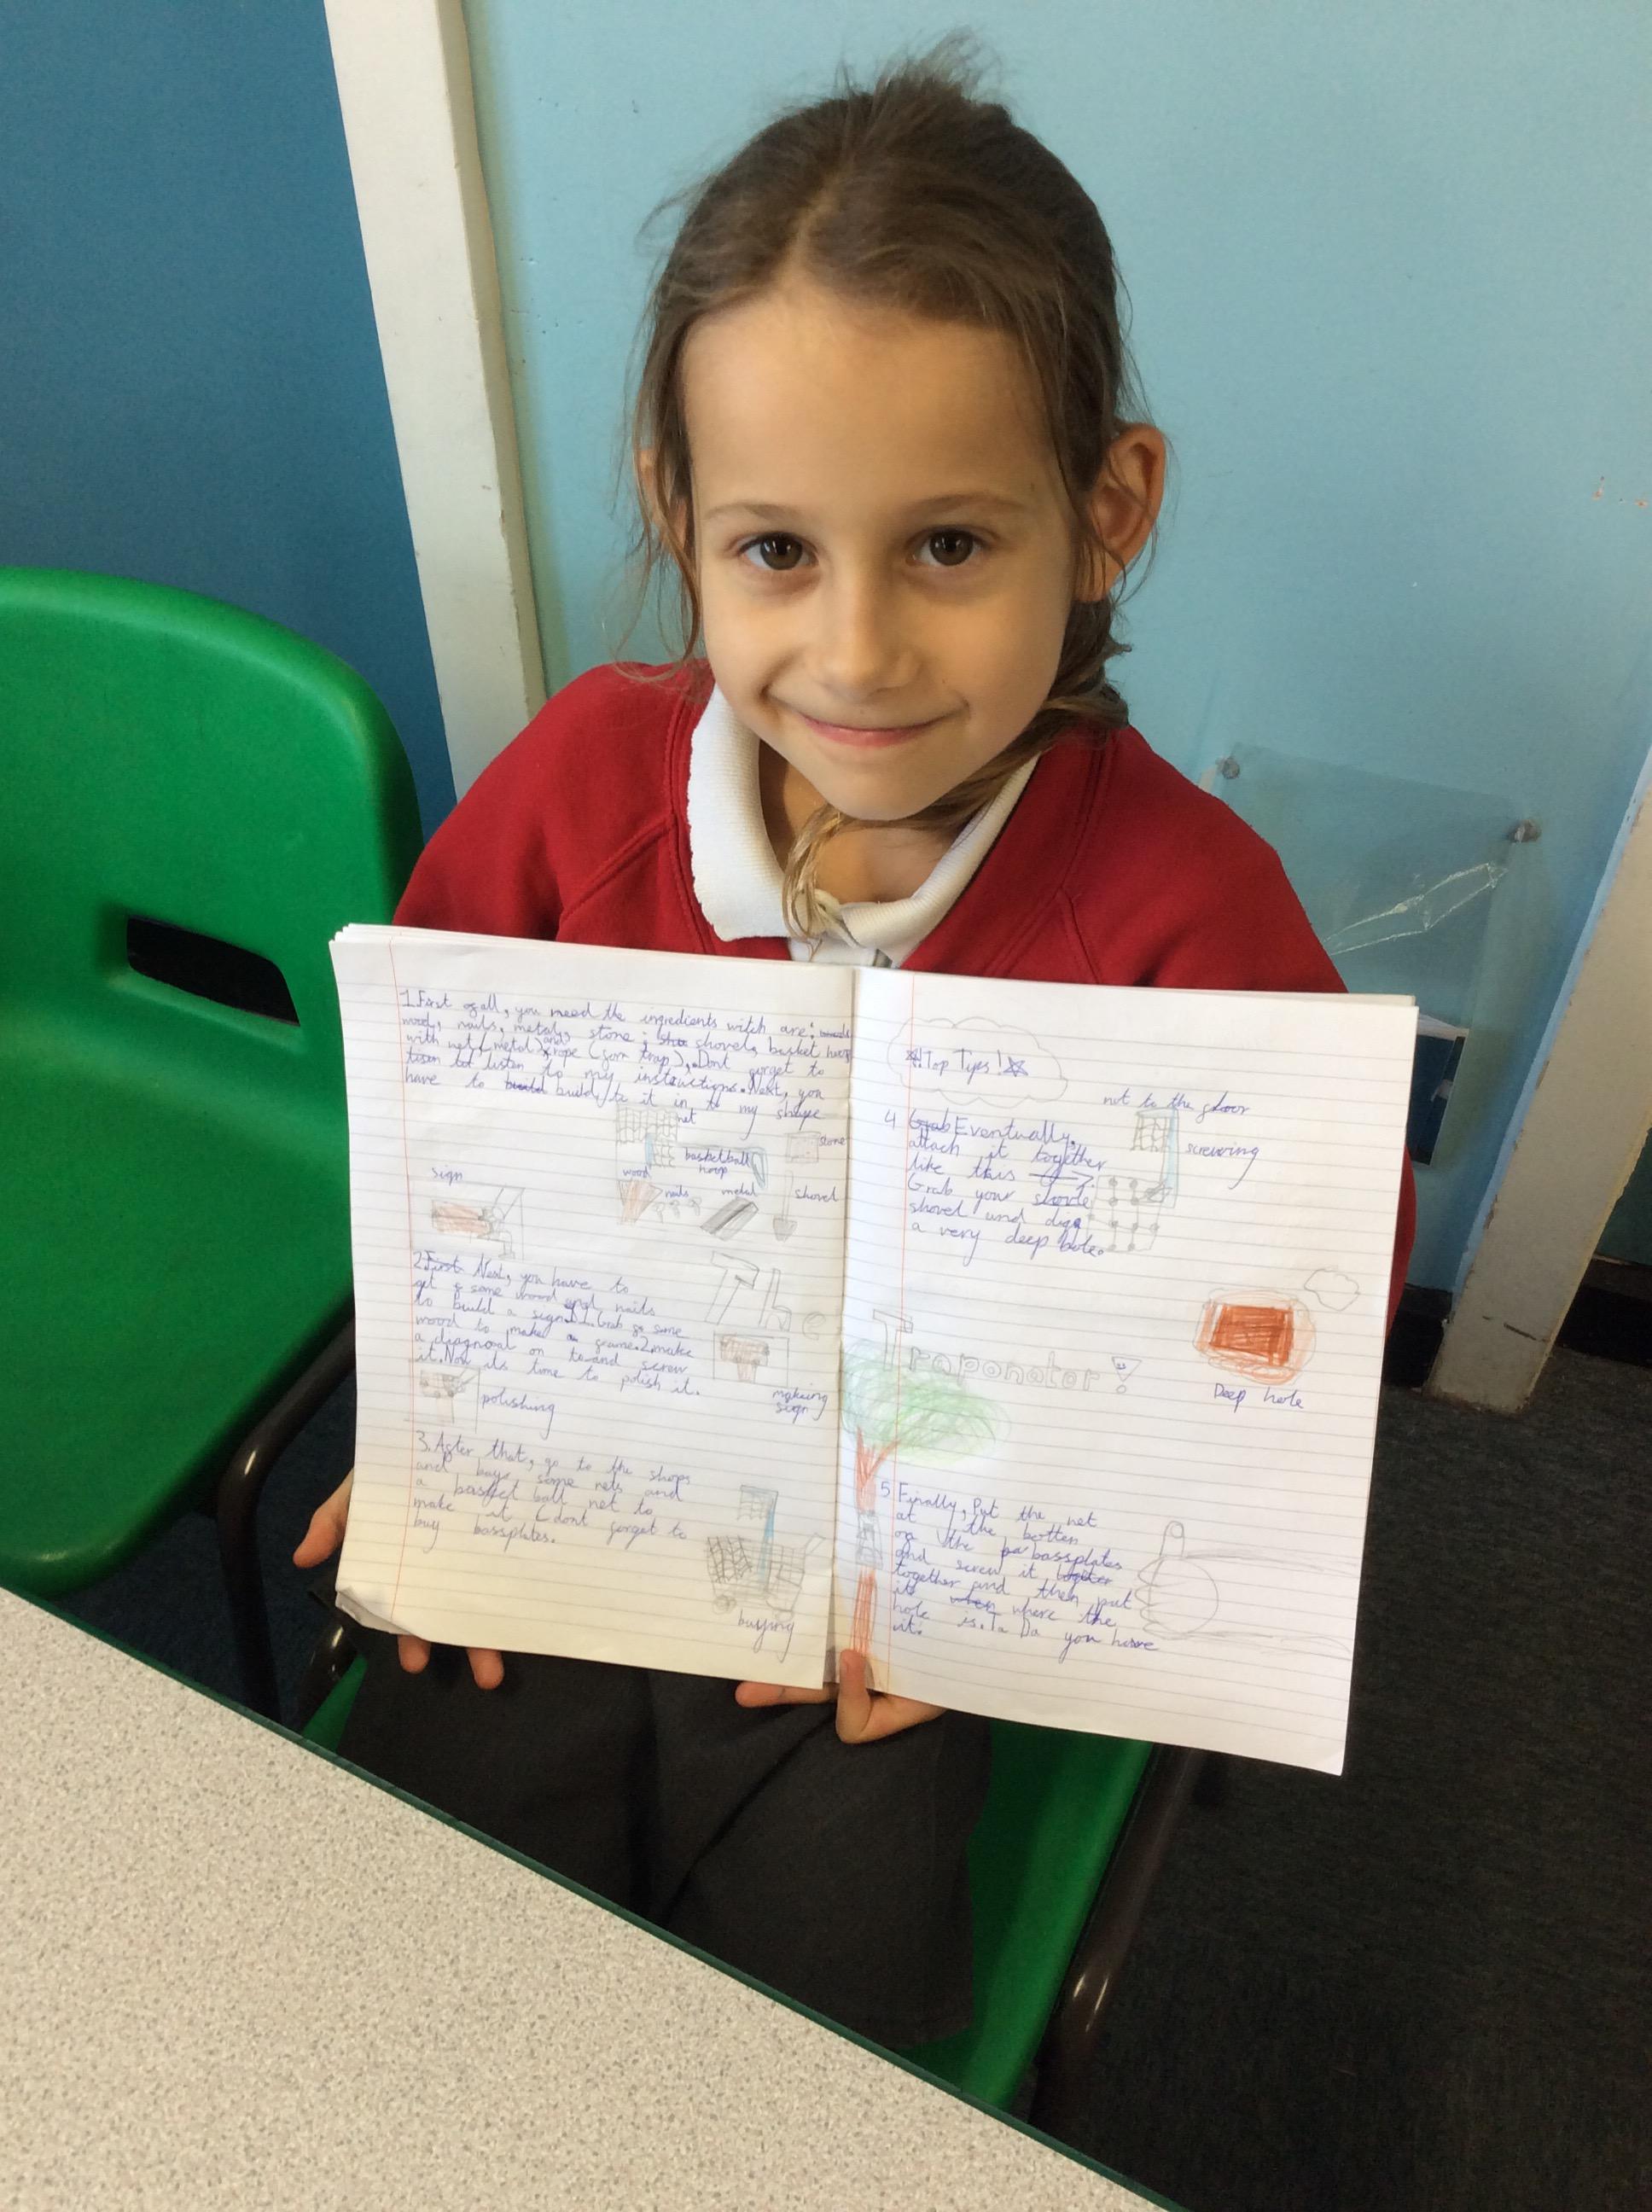 1.First of all, you need the ingredients witch are:
wood, nails, metal, stone, shovel, basket hoop
with net (metal) and rope (for trap), Dont forget to
listen to my instructions. Next, you
have to build build it in to my shape
net
stone
basketball
hoop
wood
nails
metal
shovel
sign
2.First Next, you have to
get some wood and nails
to build a sign. 1. Grab some
wood to make a frame. 2. make
a diagnoal on to and screw
it. Now its time to polish it.
polishing
making
sign
3. After that, go to the shops
and buy some nets and
a basket ball net to
make it (dont forget to
buy bassplates.
buying
The
Traponator!
Top Tips!
not to the floor
4 Grab Eventually,
attach it together
like this
screwing
Grab your
shovel and dig
a very deep hole.
Deep hole
5 Finally, Put the net
at the botten
on the bassplates
and screw it
together and then put
it when where the
hole is. Ta Da you have
it.